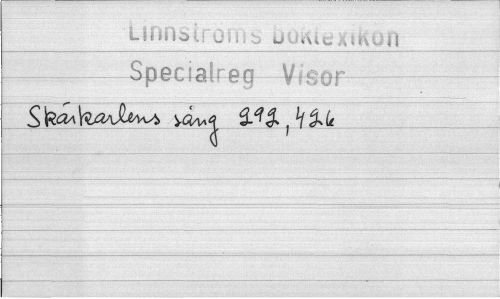 Linnströms boklexikon
Specialreg Visor
Skärkarlens sång 292, 426